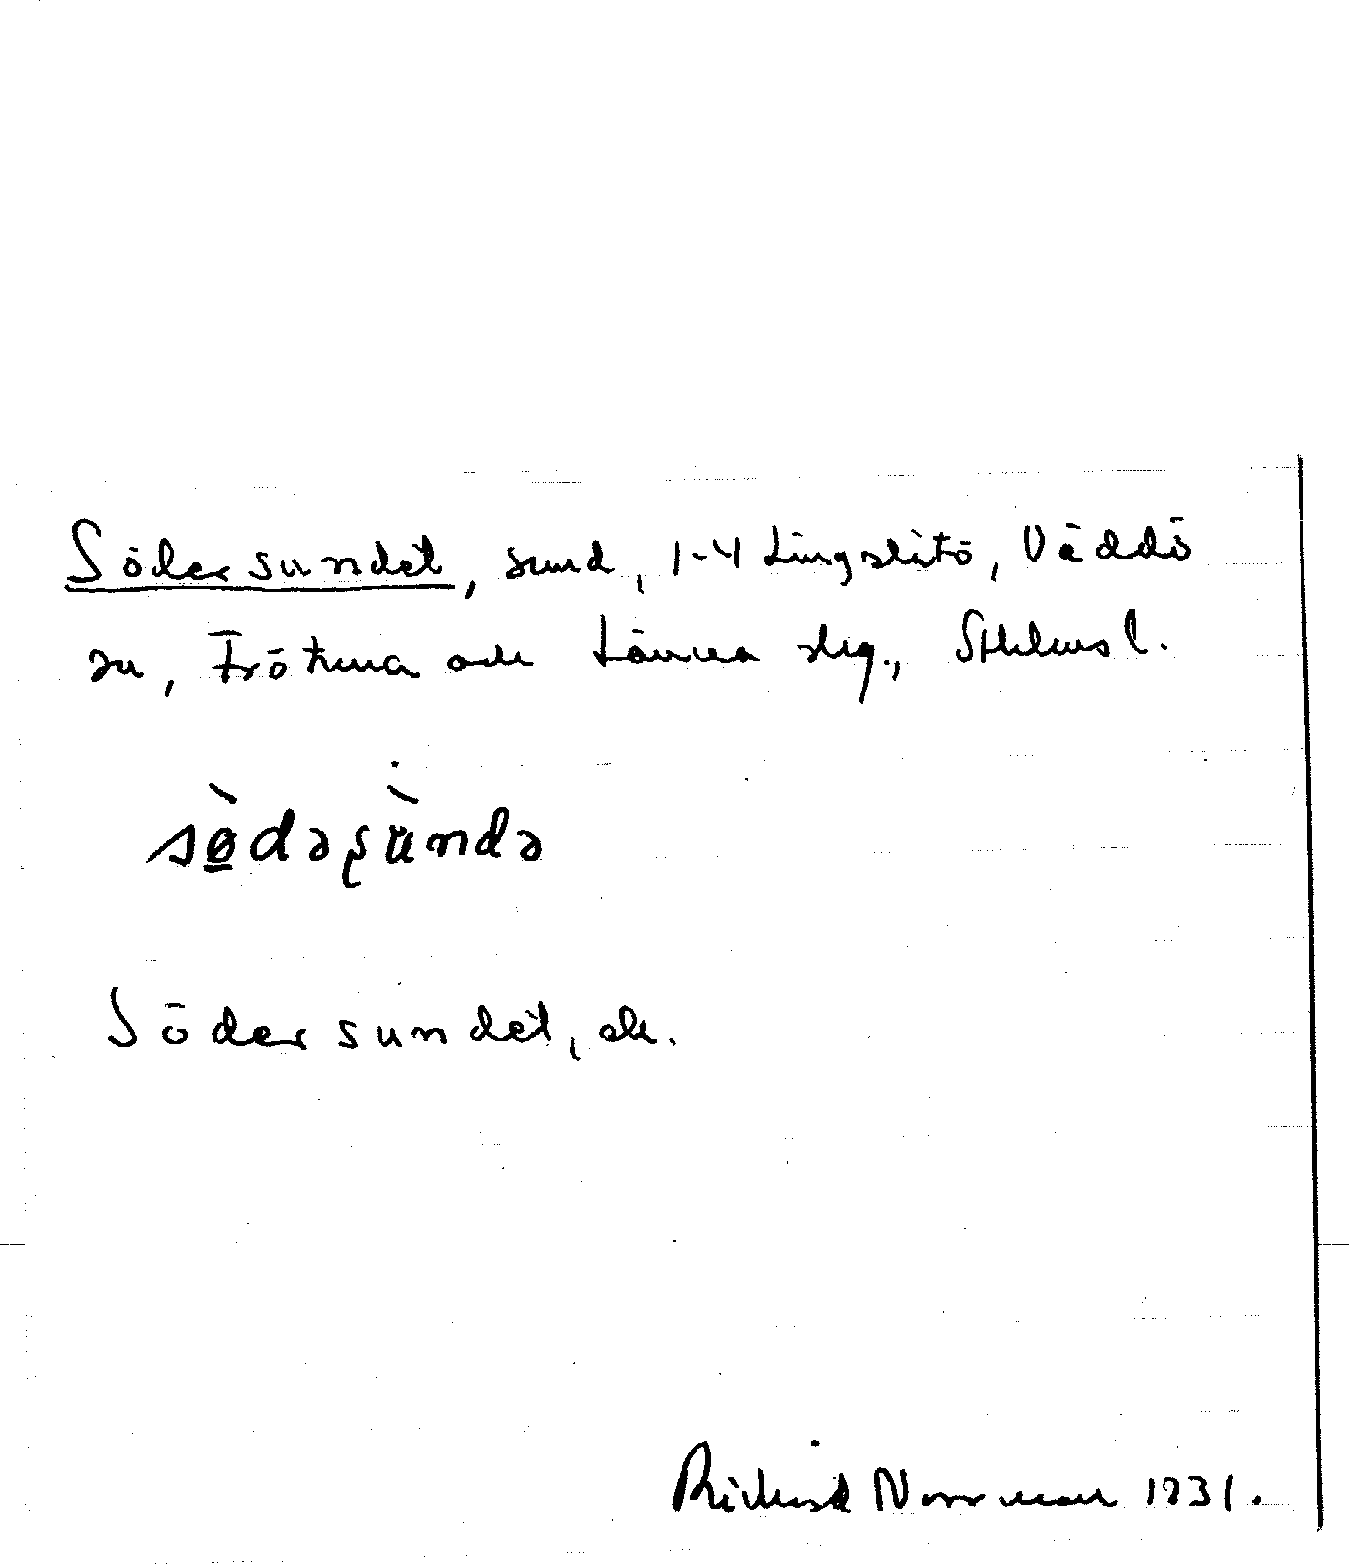 Södersundet, sund, 1-4 Lingslätö, Väddö
sn, Frötuna och Länna slg., Sthlms l.
sø̀dəʂùndə
Södersundet, ek.
Rickard Norrman 1931.